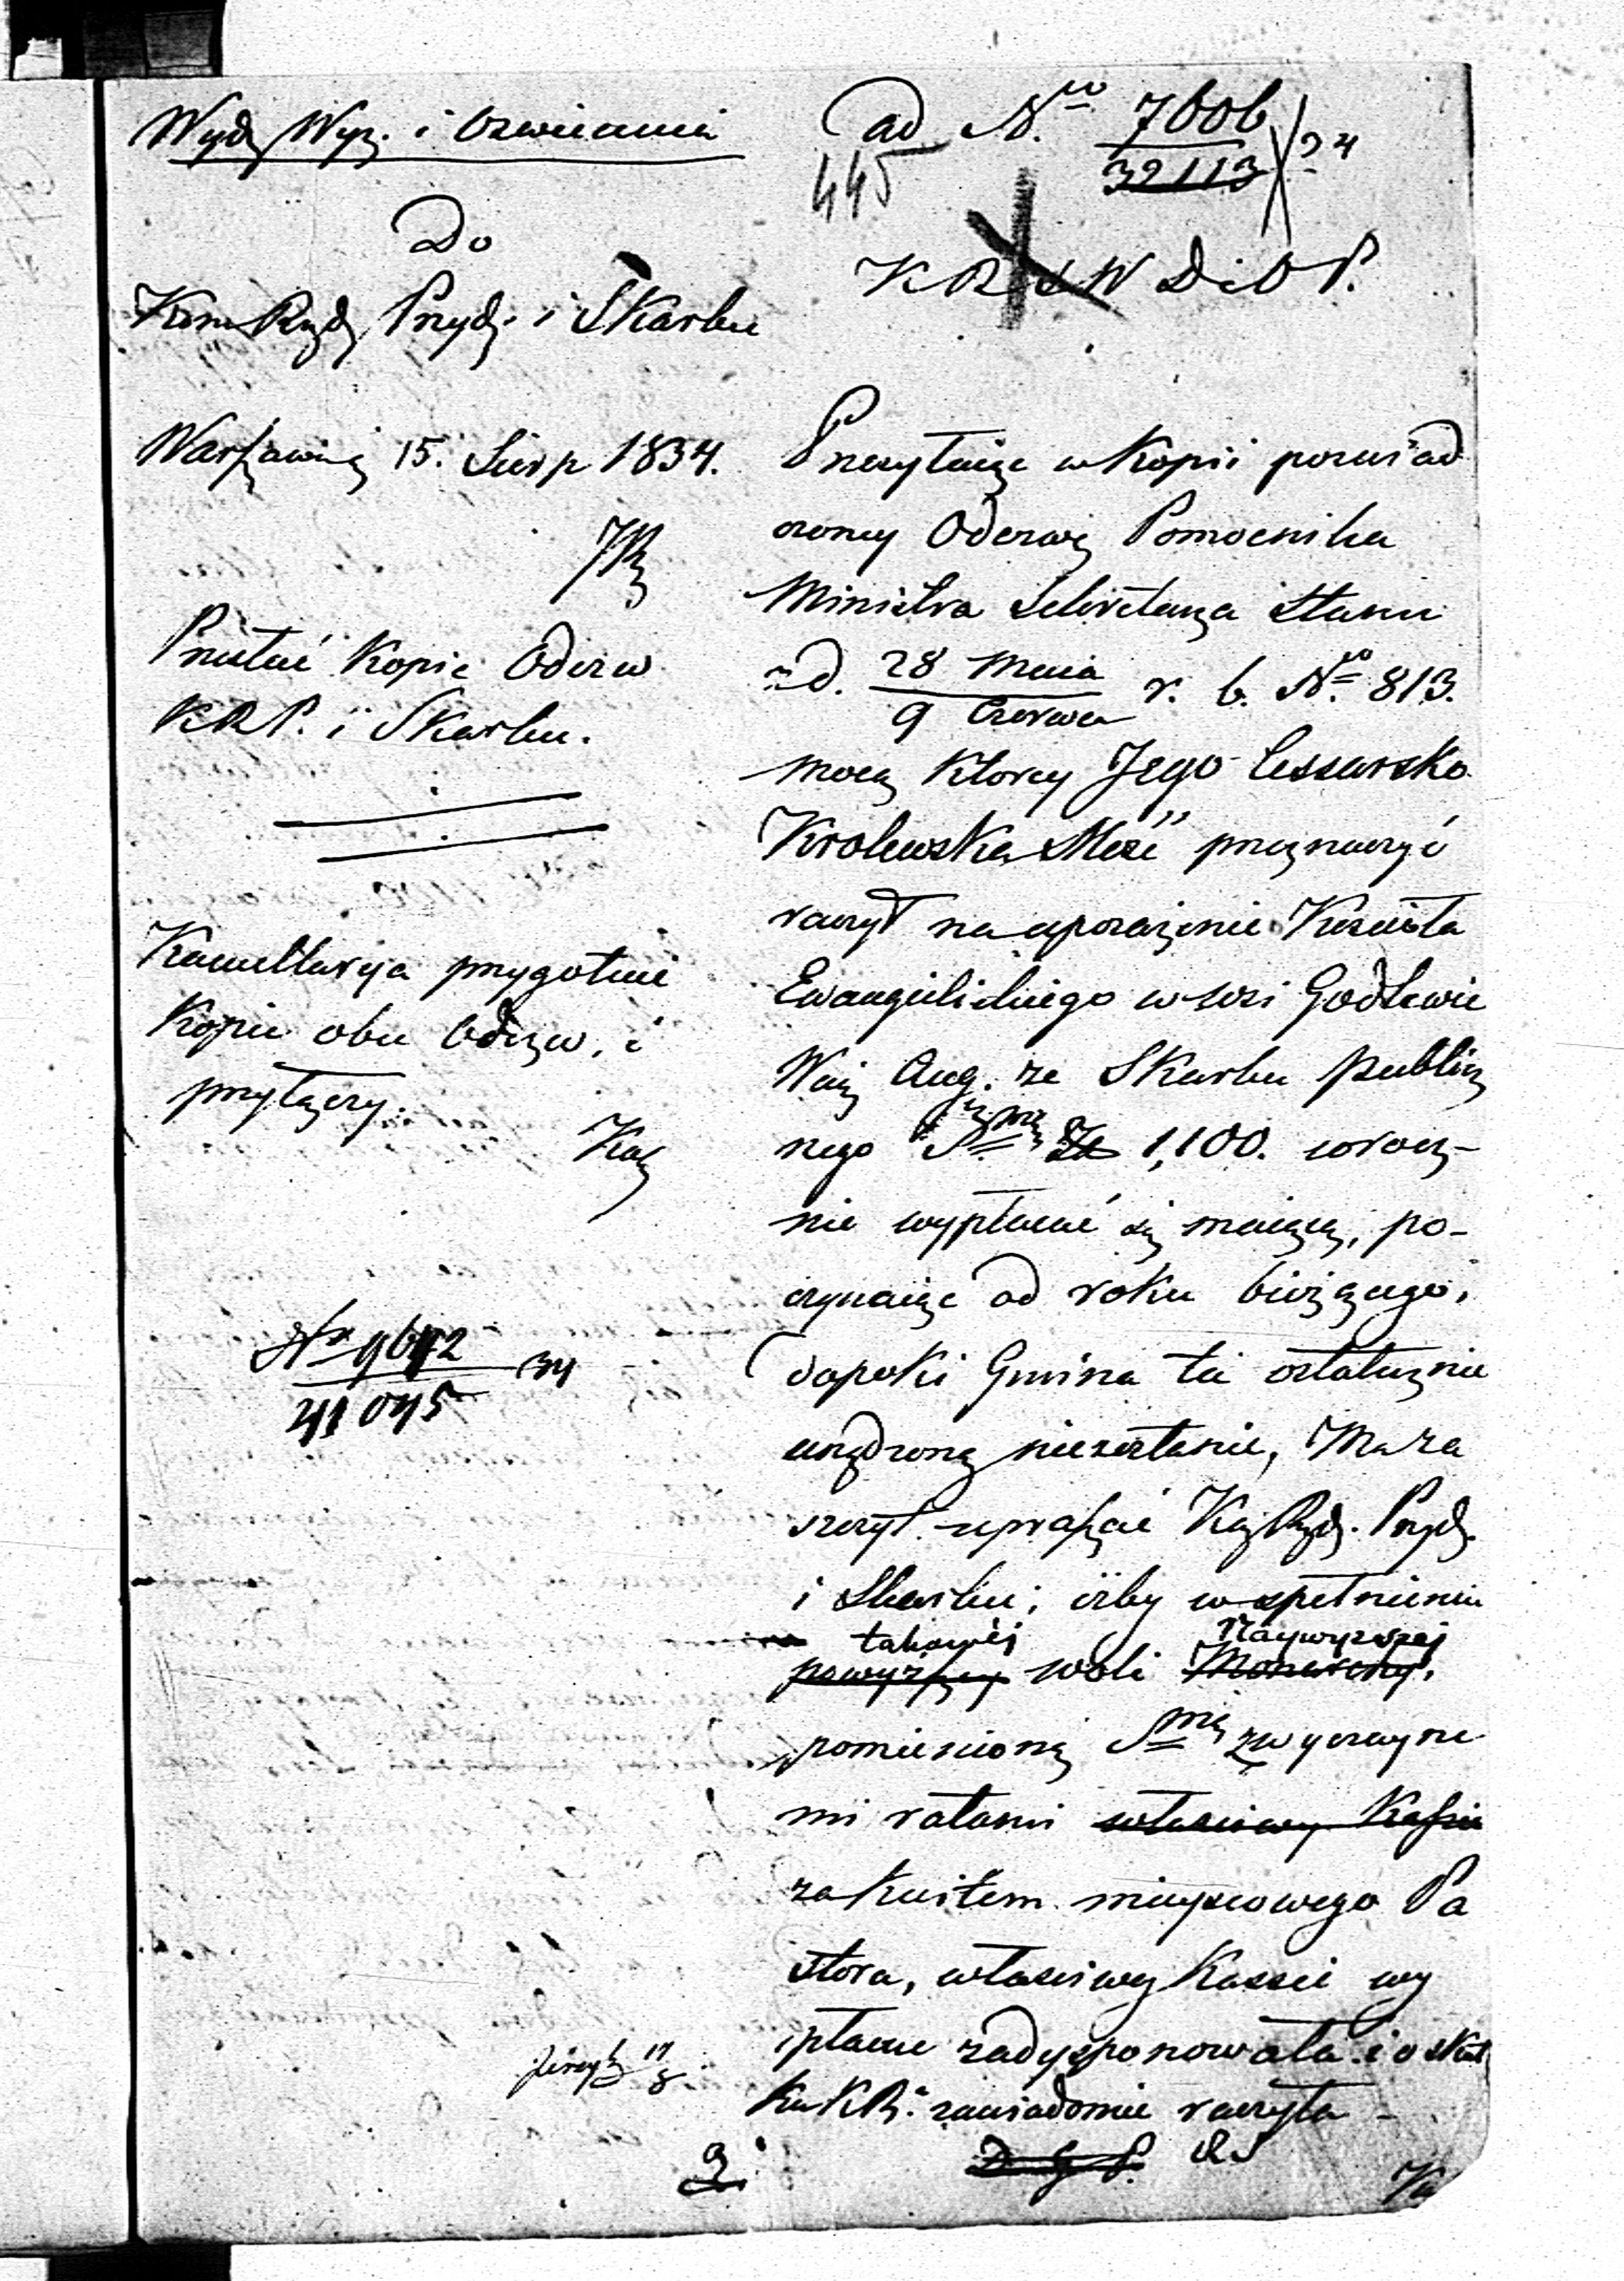 Wydz Wyz. i Oświecenia
Do
Kom Rządz Przych. i Skarbu
Warszawie 15. Sierp 1834.
Przesłać Kopie Odezw
KRP. i Skarbu.
Kancellarya przygotuie
Kopie obu Odezw, i
przyłączy.
41045
34
ad No 7606
445
32113
34
KRSW D i O P.
Przesyłaiąc w Kopii poświad
czoney Odezwę Pomocnika
Ministra Sekretarza Stanu
z d. 28 Maia
9 Czerwca
r. b. No 813.
mocą ktorey Jego Cesarsko
Krolewska Mość przeznaczyć
raczył na uposażenie Kościoła
Ewangielickiego w wsi Godlewie
Wdz Aug. ze Skarbu publicz
nego Smę 1,100. corocz-
nie wypłacać się maiącą, po-
czynaiąc od roku bieżącego,
dopoki Gmina ta ostatecznie
urządzoną niezostanie, Ma za
szczyt upraszać Kom Rządz. Przych.
i Skarbu; iżby w spełnieniu
takowéj
Naywyzszej
powyższey woli Monarchy,
pomienioną Smę zwyczayne
mi ratami właściwey Kassie
za kwitem mieyscowego Pa
stora, właściwey Kassie wy
płacać zadysponowała i o skut
ku KR. zawiadomić raczyła
D G P.